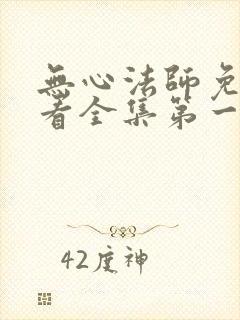 無心法師免
看全集第一
42度神